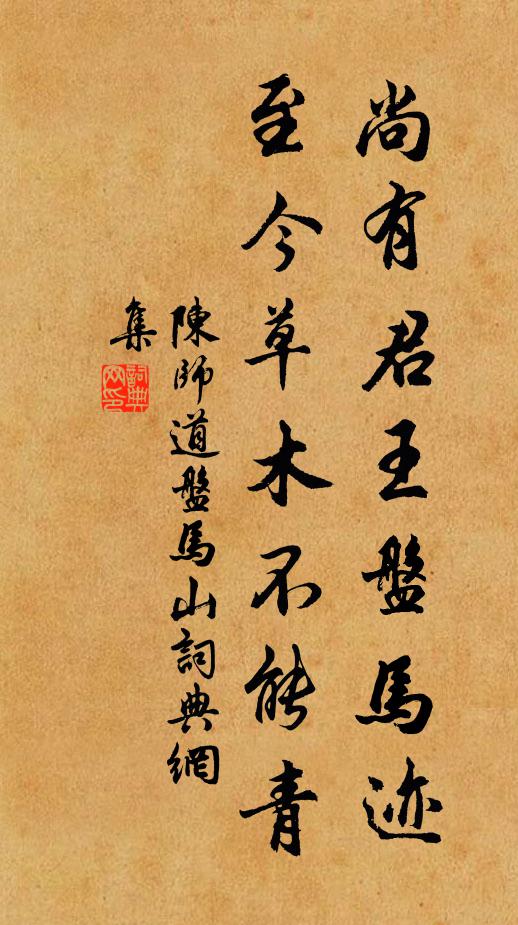 尚有君王盤馬迹
至今草木不能青
陳師道盤馬山詞典網
集
詞典
网印